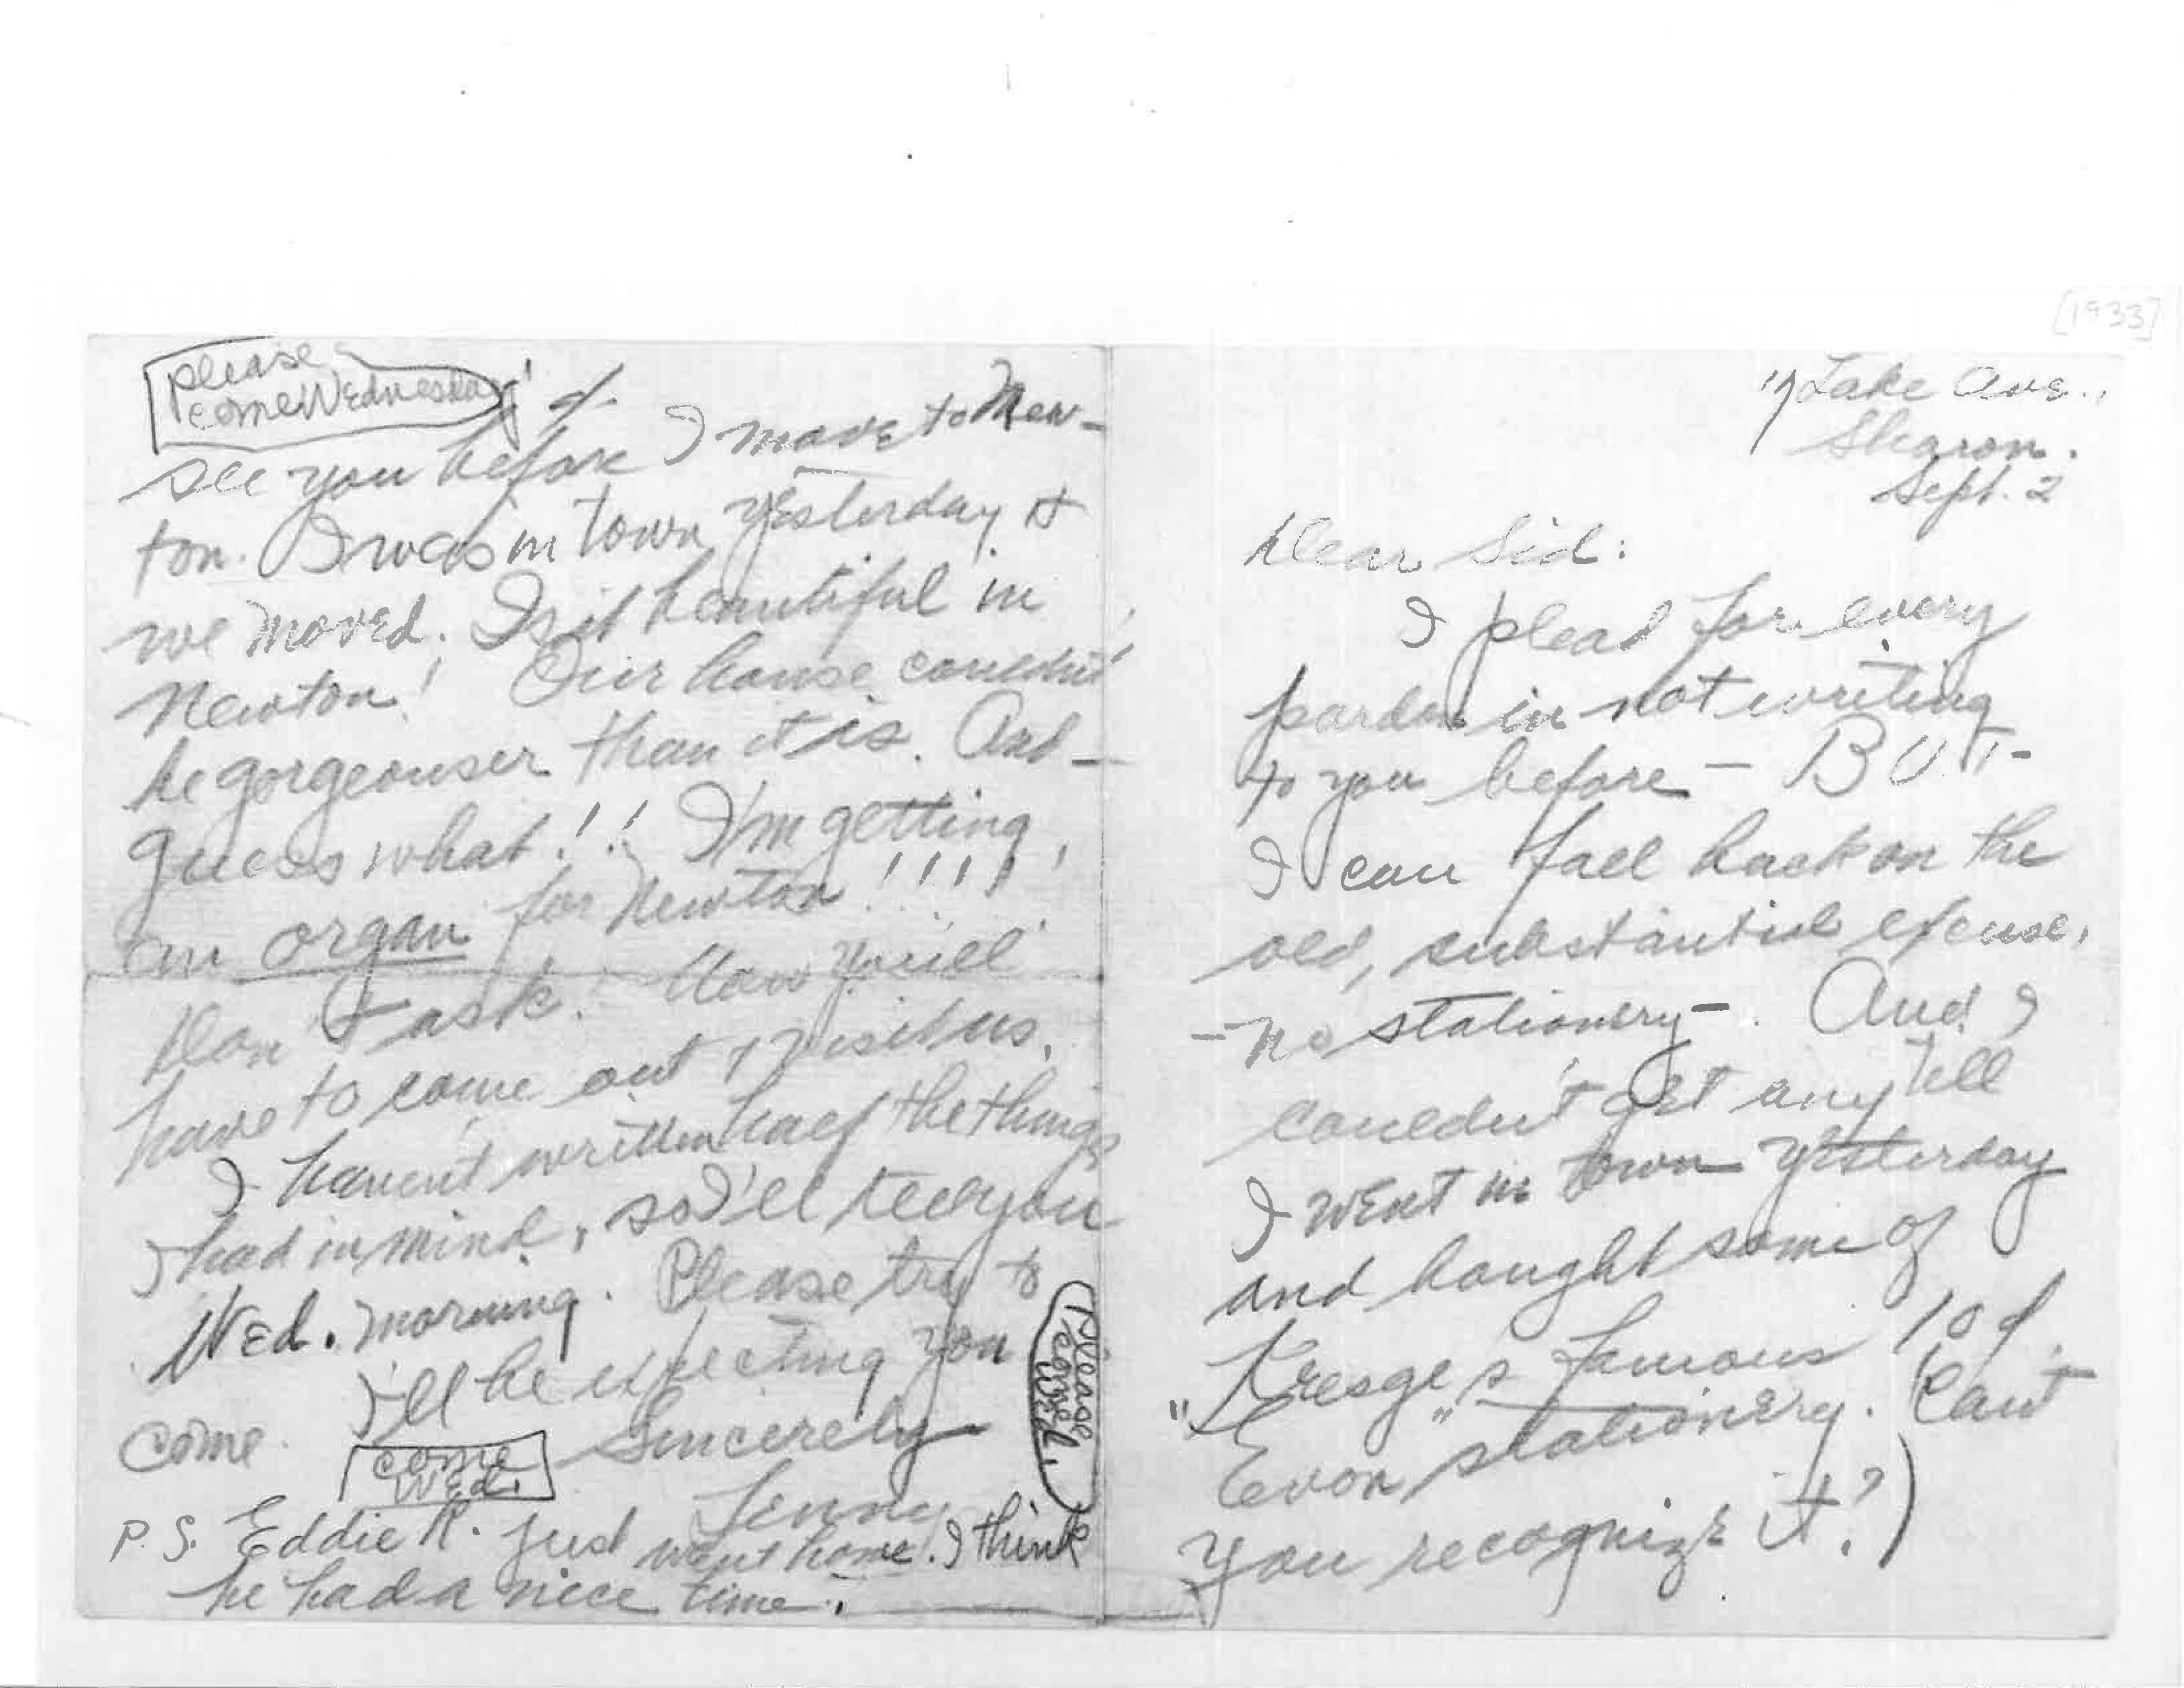 [1933]
17 Lake Ave.,
Sharon.
Sept. 2
Dear Sid:
I plead for every
pardon in not writing
to you before – BUT –
I can fall back on the
old, substantial excuse,
– no stationery – . And I
couldn't get any till
I went in town yesterday
and bought some of
"Kresge's famous 10¢
Evon" stationery. (Can't
you recognize it?)
please
come Wednesday!
4.
see you before I move to New-
ton. I was in town yesterday &
we moved. Is it beautiful in
Newton! Our house couldn't
be gorgeouser than it is. And –
guess what!!! I'm getting
an organ for Newton!!!!
Don't ask! Now you'll
have to come out & visit us.
I haven't written half the things
I had in mind, so I'll tell you
Wed. morning. Please try to
come. I'll be expecting you
Please
come
Wed.
Sincerely
come
Wed.
Lenny
P.S. Eddie R. just went home. I think
he had a nice time.